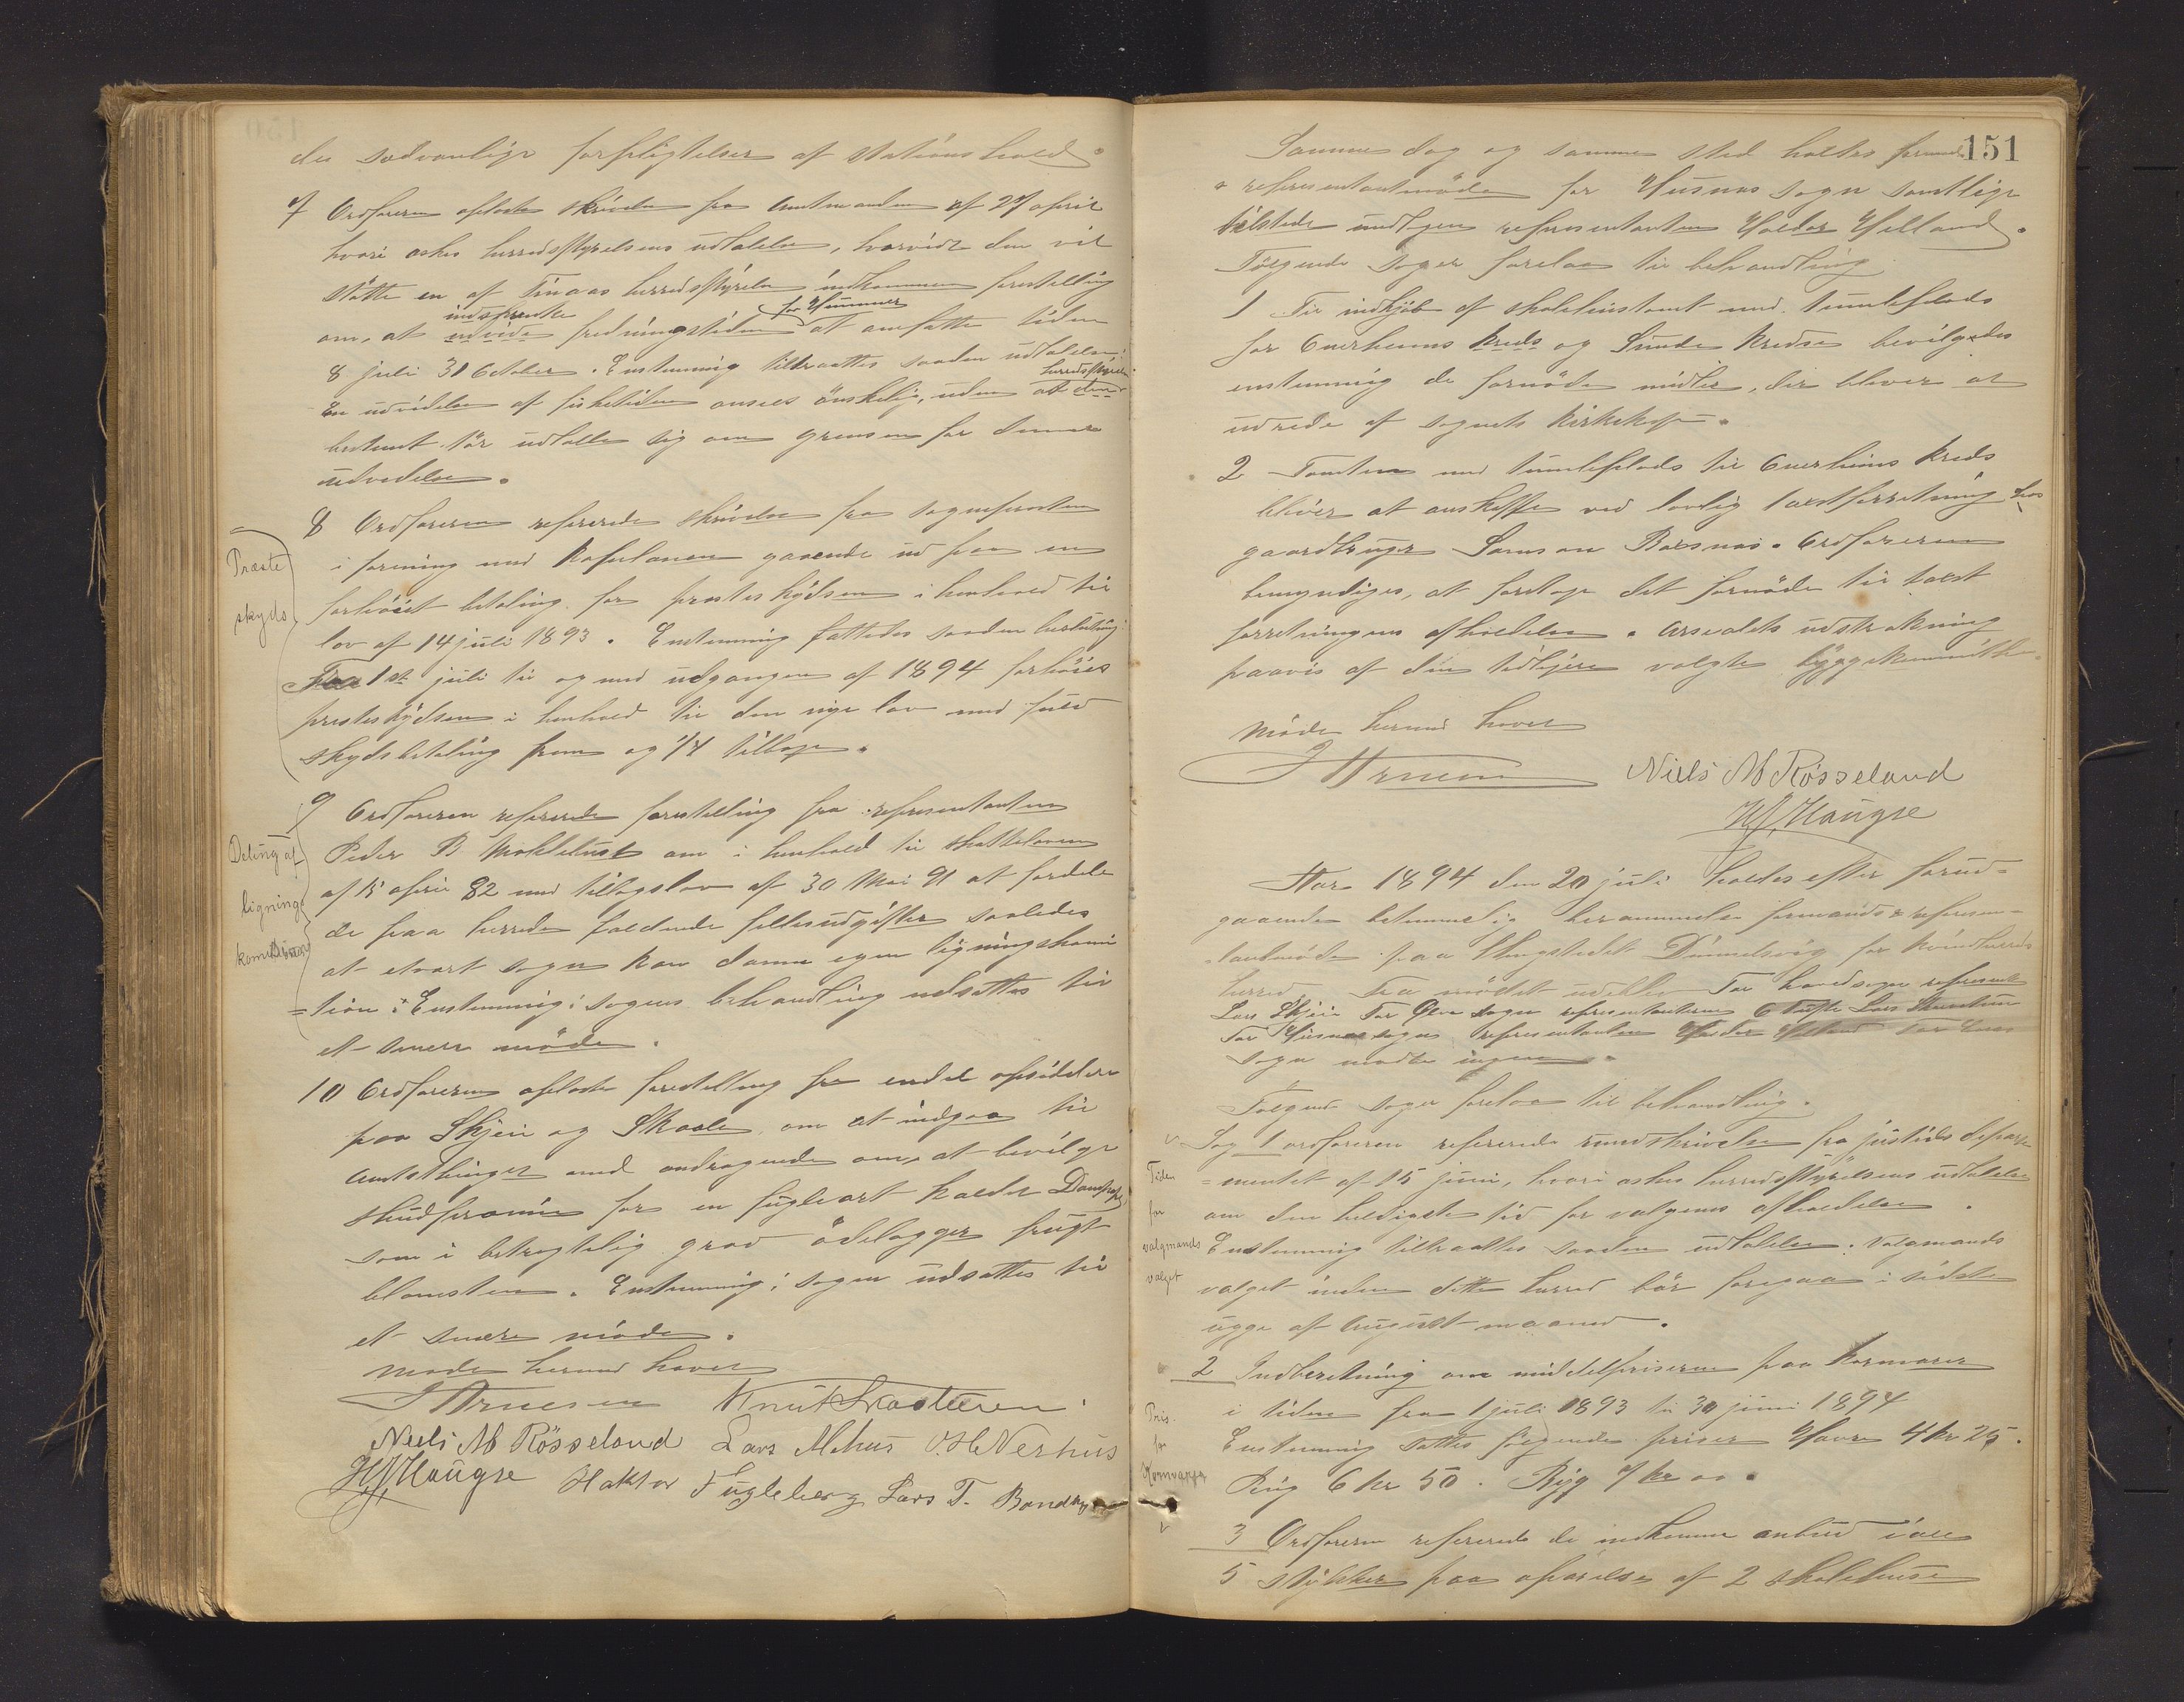 de sædvanlige forpligtelser af stationshold.
7 Ordføreren oplæste skrivelse fra Amtmanden af 27 april
hvori æskes herredsstyrelsens udtalelse, hvorvidt den vil
støtte en af Finaas herredsstyrelse indkommen forestilling
indskrænke for Hummer
om, at udvide fredningstiden at omfatte tiden
8 juli 31 October. Enstemmig tilraattes saadan udtalelse:
herredsstyrelsen
En udvidelse af fisketiden ansees ønskelig, uden at den
bestemt tør udtalle sig om grensen for denne
udvidelse.
8 Ordføreren refererede skrivelse fra sognepresten
i forening med Kapelanen gaaende ud paa en
Præste
forhöiet betaling for presteskydsen i henhold til
skyds
lov af 14 juli 1893. Enstemmig fattedes saadan beslutning:
Fra 1ste juli til og med udgangen af 1894 forhöies
presteskydsen i henhold til den nye lov med fuld
skydsbetaling frem og 1/4 tilbage.
9 Ordføreren refererede forestilling fra representanten
Deling af
Peder B Mehlthust om i henhold til skatteloven
af 15 april 82 med tillægslov af 30 Mai 91 at fordele
lignings
de paa herredet faldende fellesudgifter saaledes
kommission
at etvert sogn kan danne egen ligningskomi
=sion: Enstemmig: sagens behandling udsættes til
et senere møde.
10 Ordføreren oplæste forestilling fra endel opsiddere
paa Skjeie og Skaale om at indgaa til
Amtsthinget med andragende om, at bevilge
skudpremie for en fugleart kaldet Dompap
som i betragtelig grad ödelægger frugt
blomsten. Enstemmig: sagen udsættes til
et senere møde.
Møde hermed hævet
J Arnesen Knut Skaaluren
Niels M Røsseland Lars Mehus O.H. Nerhus
HJHaugse Haktor Fugleberg Lars T. Bondhus
151
Samme dag og samme sted holdtes formands
& representantmøde for Husnes sogn samtlige
tilstede undtagen representanten Haldor Helland.
Følgende sager forelaa til behandling
1 Til indkjöb af skolehustomt med tumleplads
for Enerhems kreds og Sunde kredse bevilgedes
enstemmig de fornødne midler, der bliver at
udrede af sognets kirkekasse.
2 Tomten med tumleplads til Enerheims kreds
bliver at anskaffe ved lovlig taxtforretning hos
gaardbruger Samson Røsnæs. Ordføreren
bemyndiges, at foretage det fornødne til taxt
forretningens afholdelse. Arealets udstrækning
paavis af den tidligere valgte byggekommitte.
Møde hermed hævet
J Arnesen Niels M Røsseland
HJHaugse
Aar 1894 den 20 juli holdtes efter forud=
gaaende betimmelig berammelse formands & represen=
tantmøde paa thingstedet Dimmelsvig for Kvindherreds
herred. Fra mødet udeblev for hovedsogn represent
Lars Skjeie For Ølve sogn representanterne O Tufte Lars
For Husnes sogn representanten Haldor Helland For Enes
sogn mødte ingen.
Følgende sager forelaa til behandling.
Sag 1 ordføreren refererede rundskrivelse fra justidsdeparte
Tiden
=mentet af 15 juni, hvori æskes herredsstyrelsens udtalelse
for
om den heldigste tid for valgenes afholdelse.
valgmands
Enstemmig tilraattes saadan udtalelse: Valgmands
valget
valget inden dette herred bør foregaa i sidste
ugge af August maaned.
2 Indberetning om middelpriserne paa kornvarer
Pris
i tiden fra 1 juli 1893 til 30 juni 1894
for
Enstemmig sattes følgende priser Havre 4 kr 25.
Kornvarer
Rug 6 kr 50. Byg 7 kr oo.
3 Ordføreren refererede de indkomne anbud i alt
5 stykker paa opførelse af 2 skolehuse